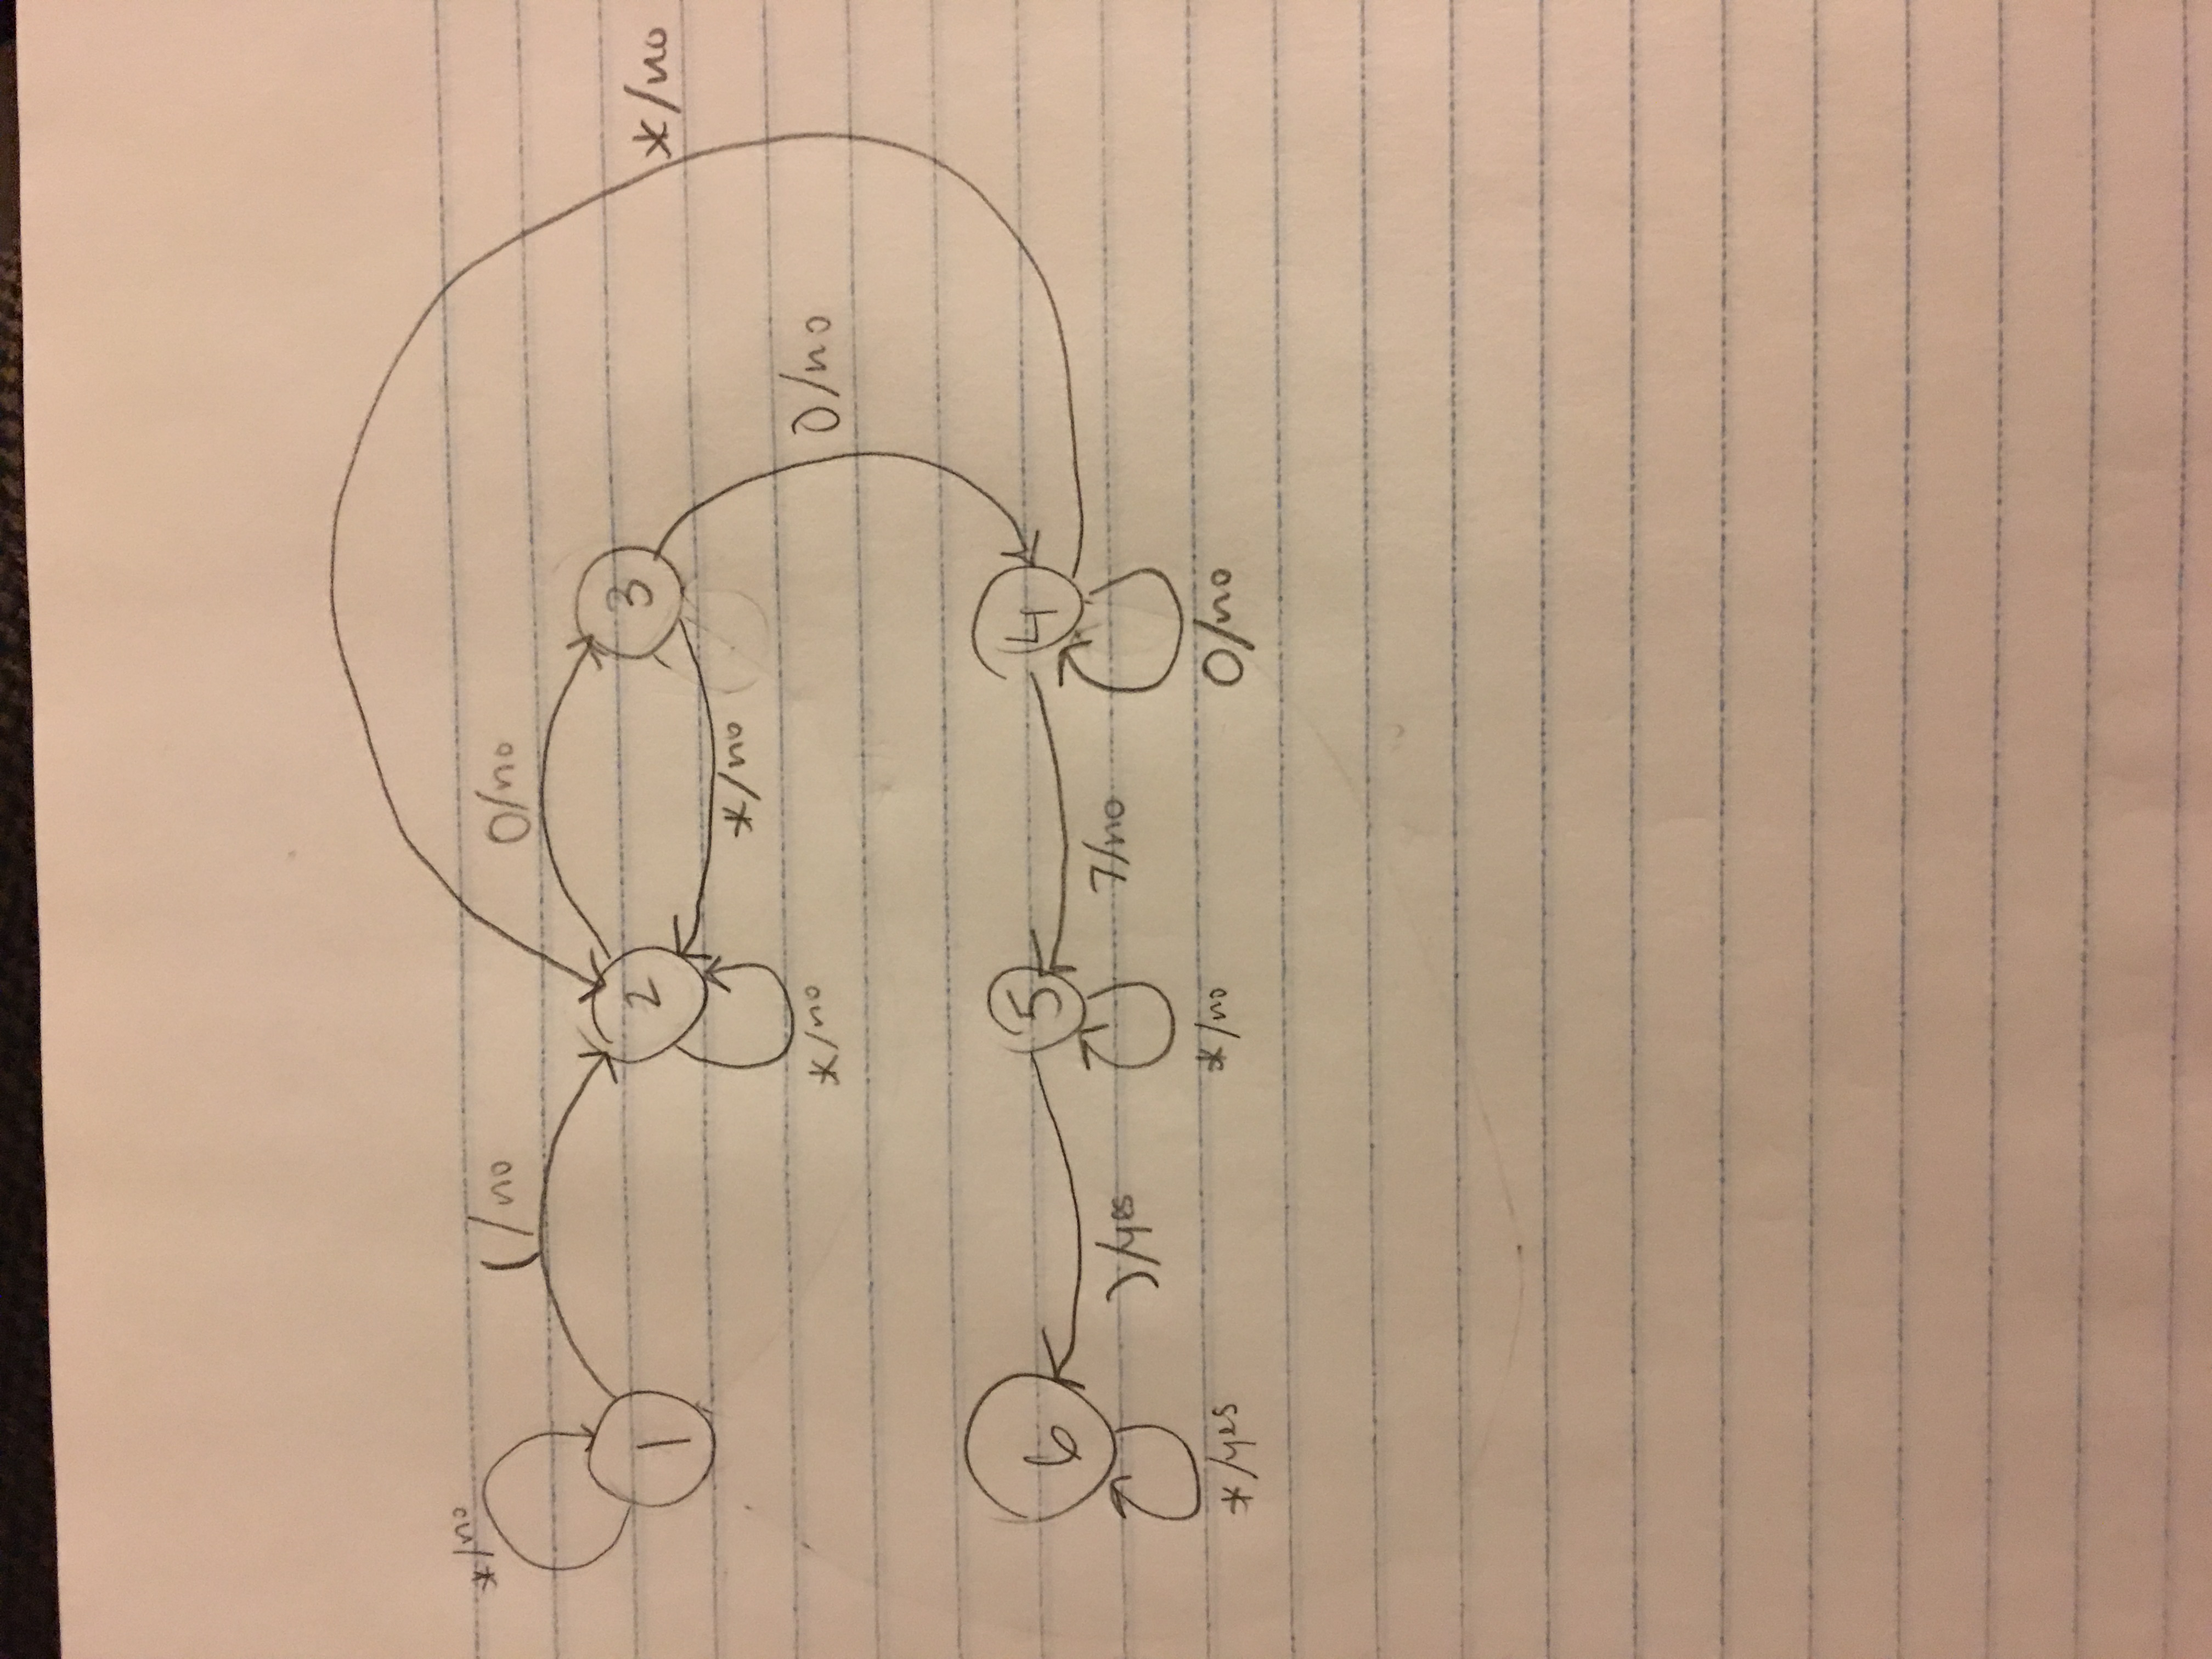 */no
(/no
0/no
1
2
3
*/no
*/no
*/no
0/no
6
5
4
)/yes
7/no
*/yes
*/no
0/no